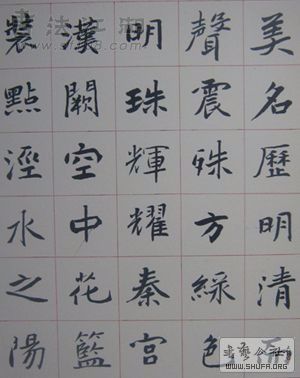 美名歷明清而
聲震殊方綵色
明珠輝耀秦宮
漢闕空中花籃
裝點涇水之陽
書法江湖
书艺公社
WWW.SHUFA.ORG